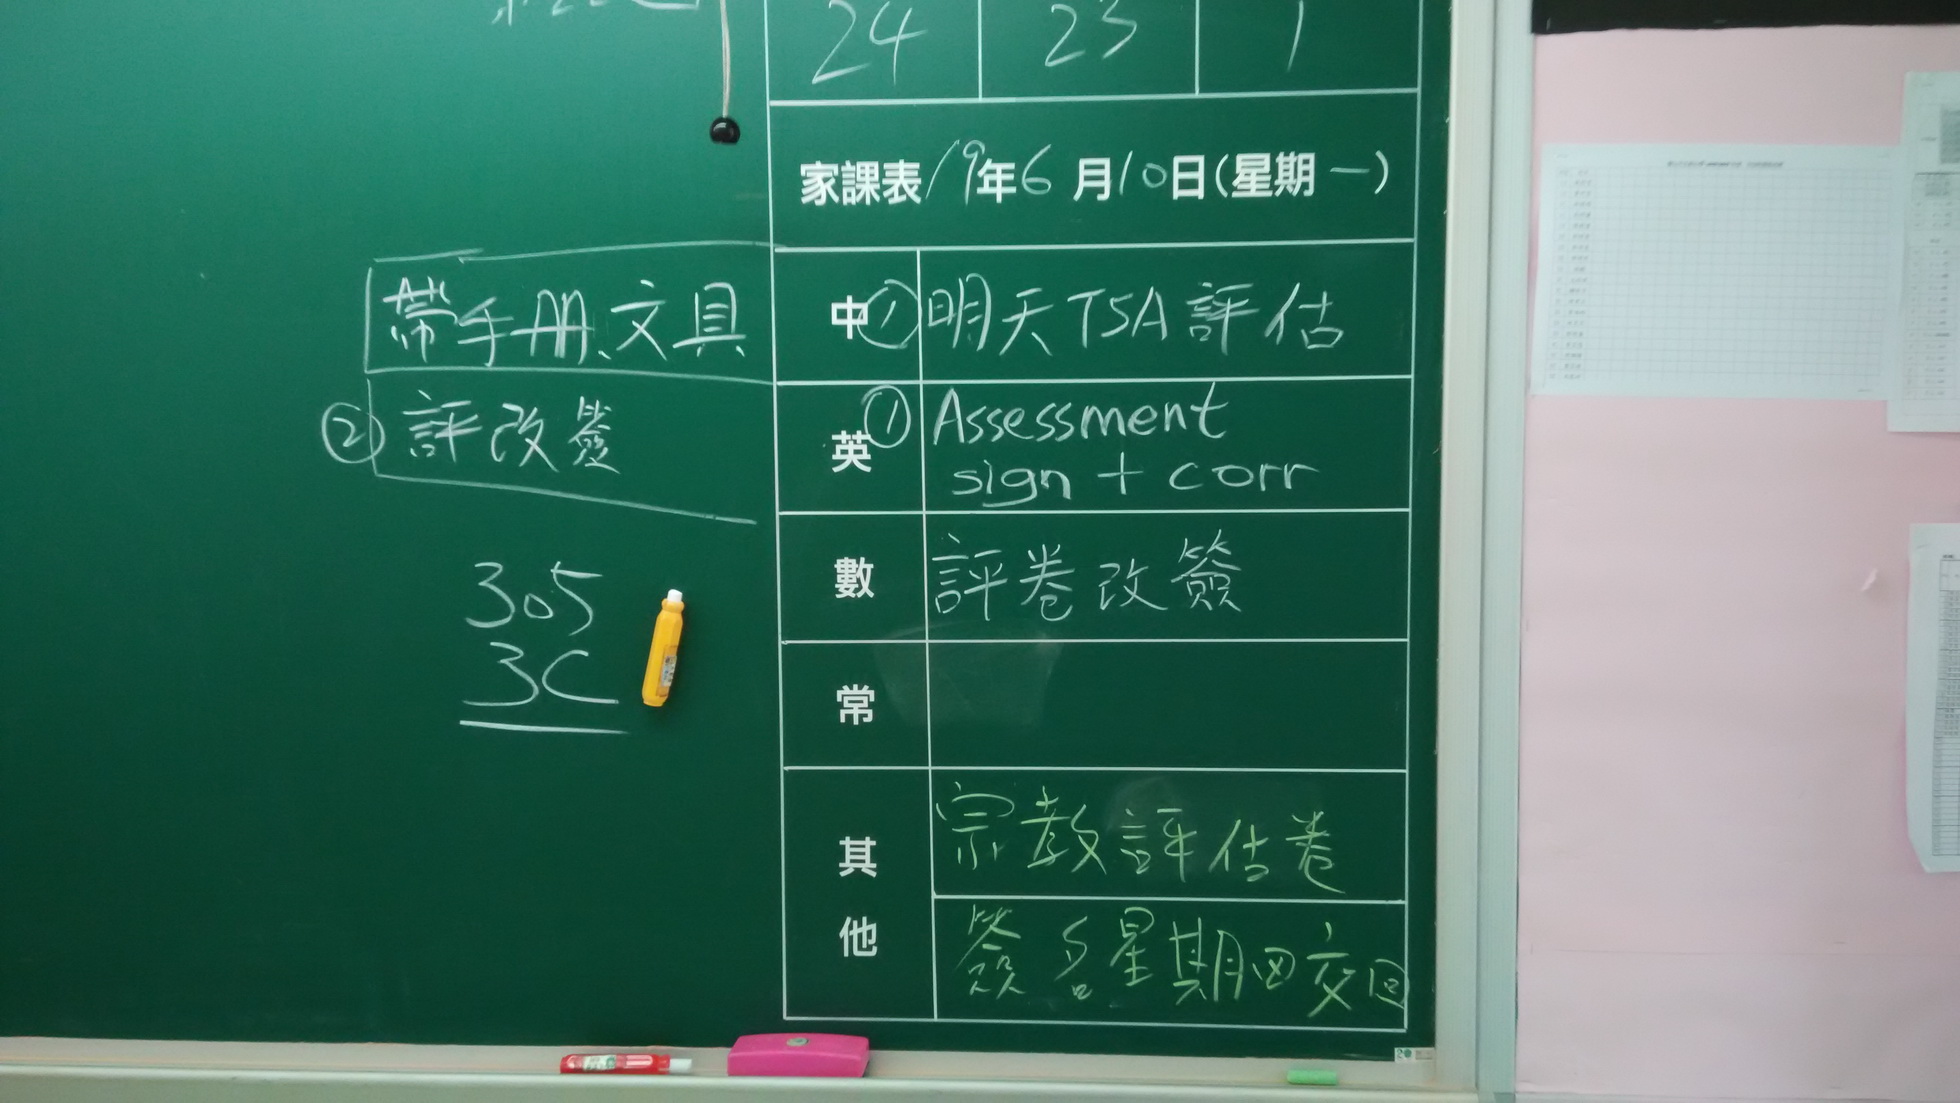 24 23 1
家課表 19年6月10日(星期一)
帶手册、文具
中 ① 明天TSA評估
② 評改簽
英 ① Assessment
sign + corr
305
3C
數 評卷改簽
常
其他
宗教評估卷
簽名星期四交回